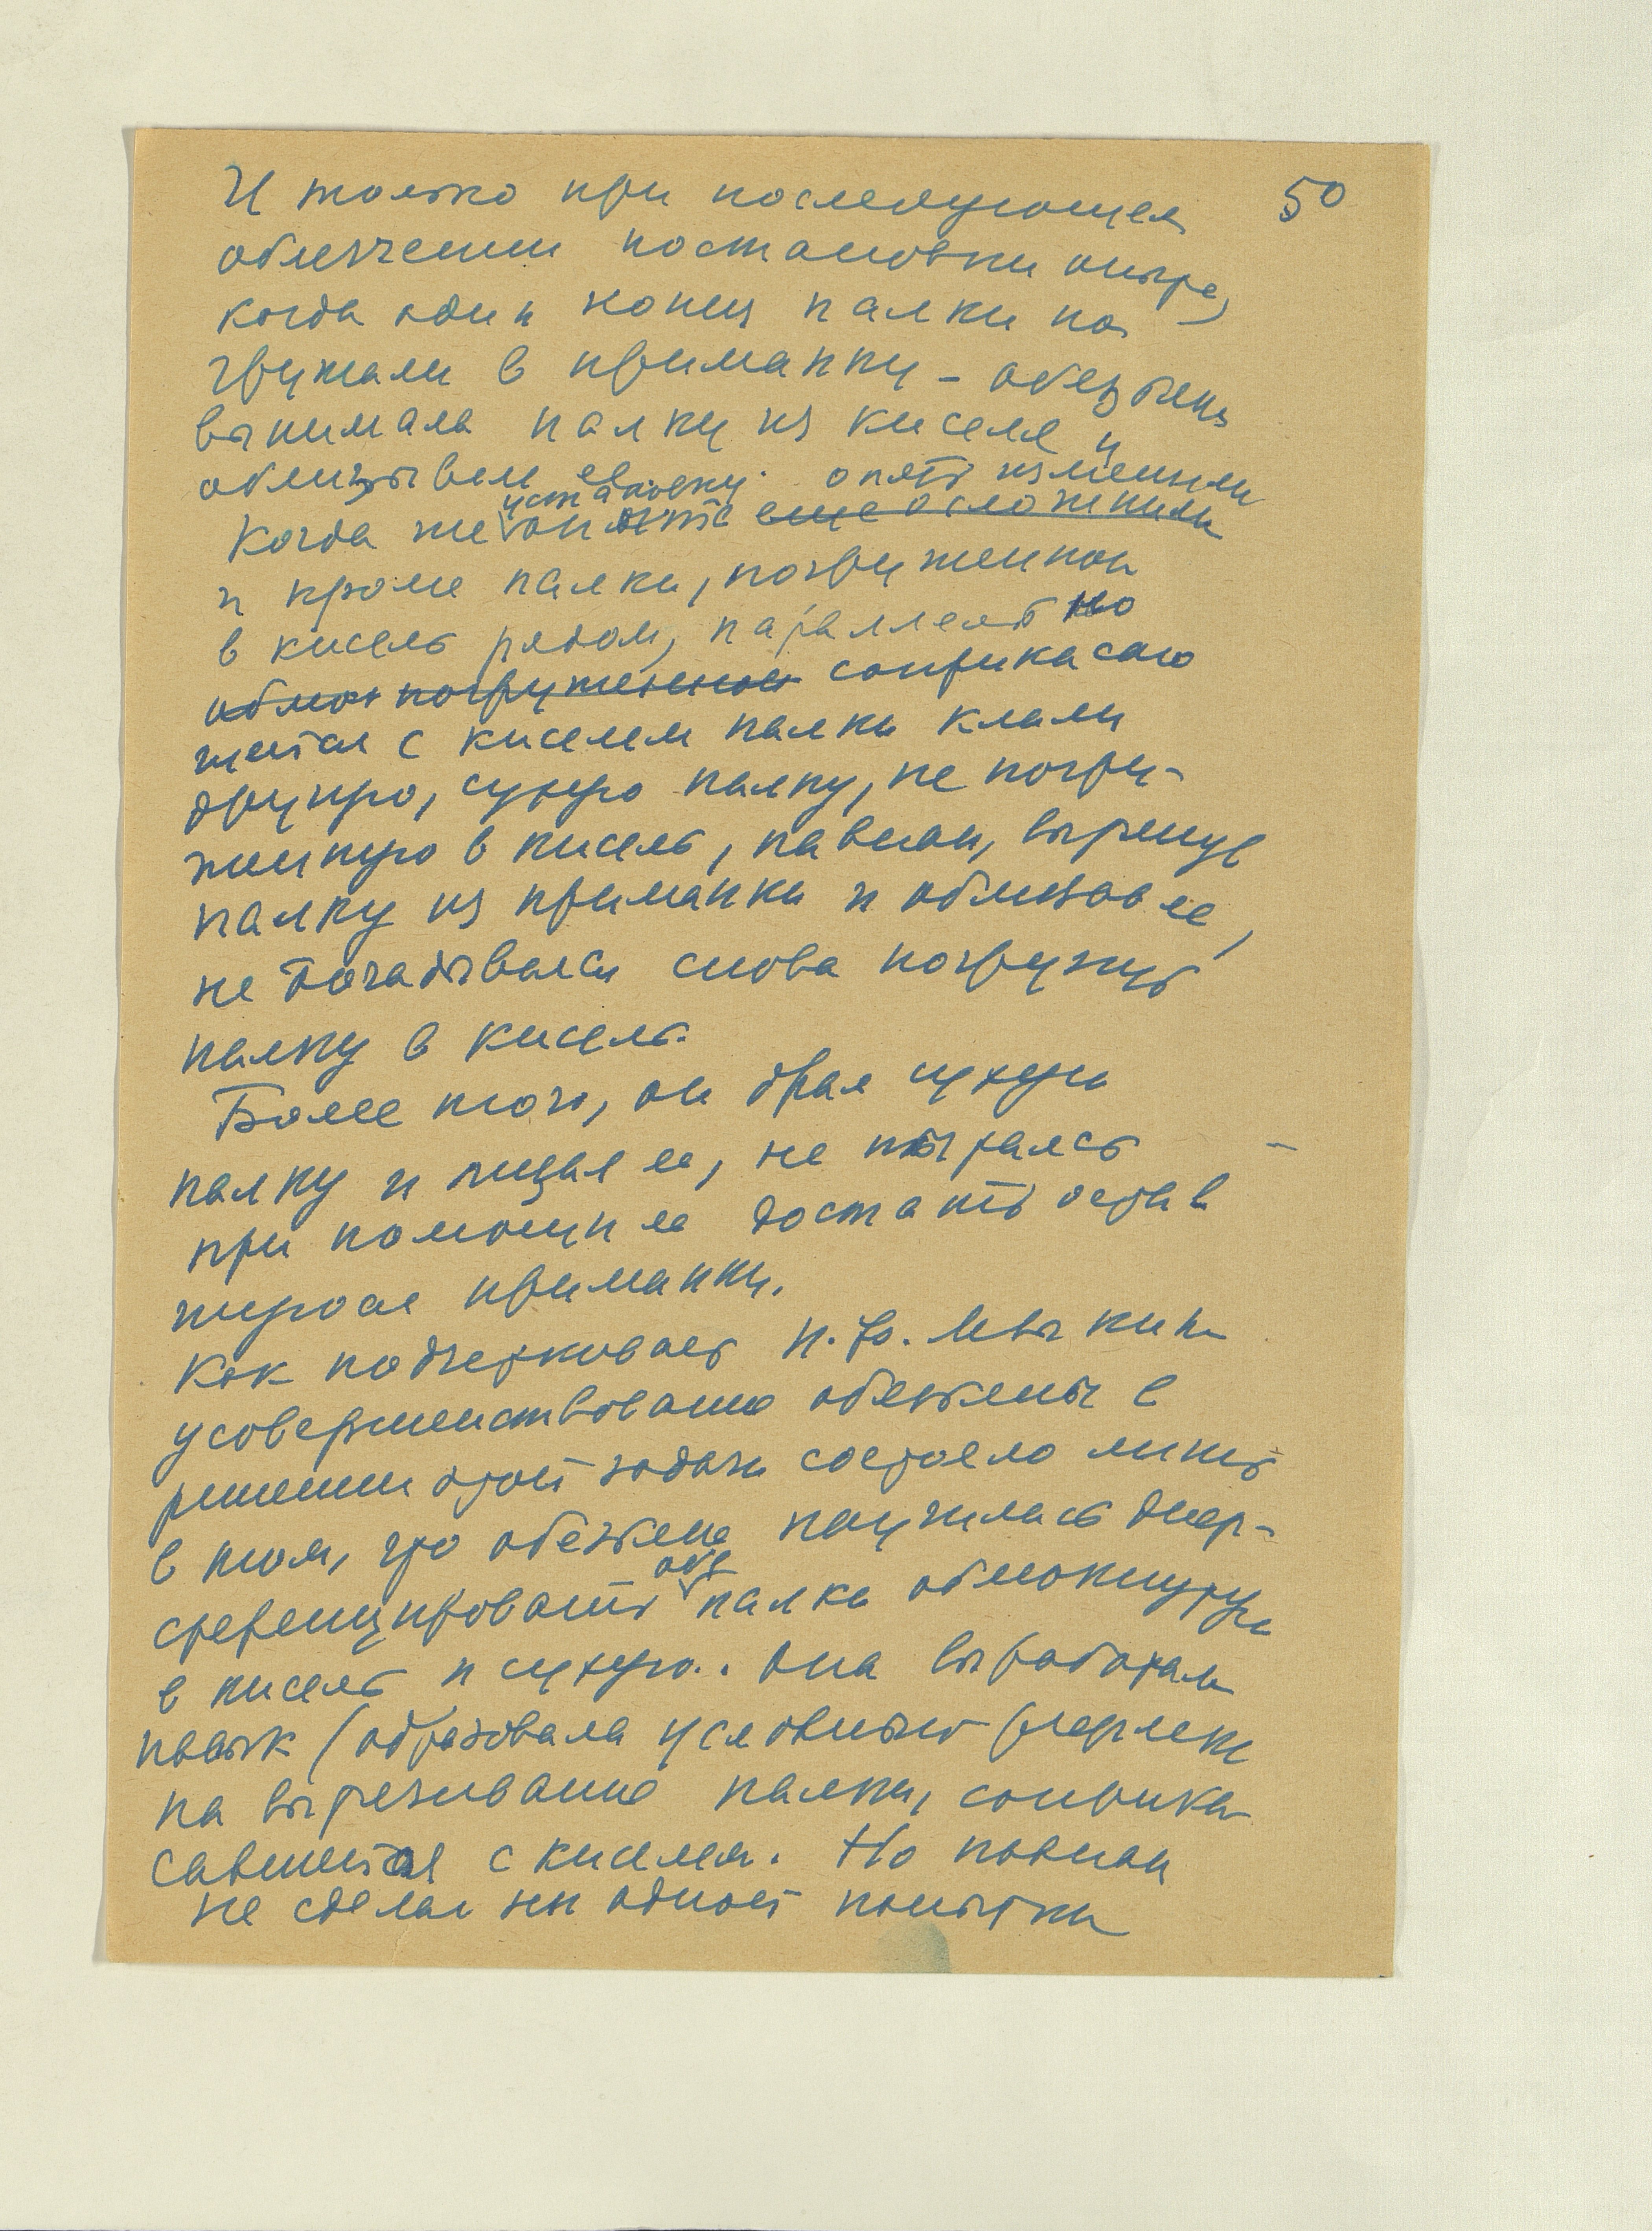 50
И только при последующем
облегчении постановки опыта,
когда один конец палки по
гружали в приманку – обезьяна
вынимала палку из киселя и
облизывала ее.
установку опять изменили
Когда же опыт еще осложнили
и кроме палки, погруженной
в кисель рядом, параллельно
обмок погруженной соприкасаю
щейся с киселем палки клали
другую, сухую палку, не погру-
женную в кисель, павиан, вытянув
палку из приманки и облизав ее,
не догадывался снова погружать
палку в кисель.
Более того, он брал сухую
палку и лизал ее, не пытаясь
при помощи ее достать остав
шуюся приманку.
Как подчеркивает
усовершенствование обезьяны в
решении этой задачи состояло лишь
в том, что обезьяна научилась диф-
ференцировать обе палки обмокнутую
в кисель и сухую.. Она выработала
навык (образовала условный рефлекс
на вытягивание палки, соприка
савшейся с киселем. Но павиан
не сделал ни одной попытки